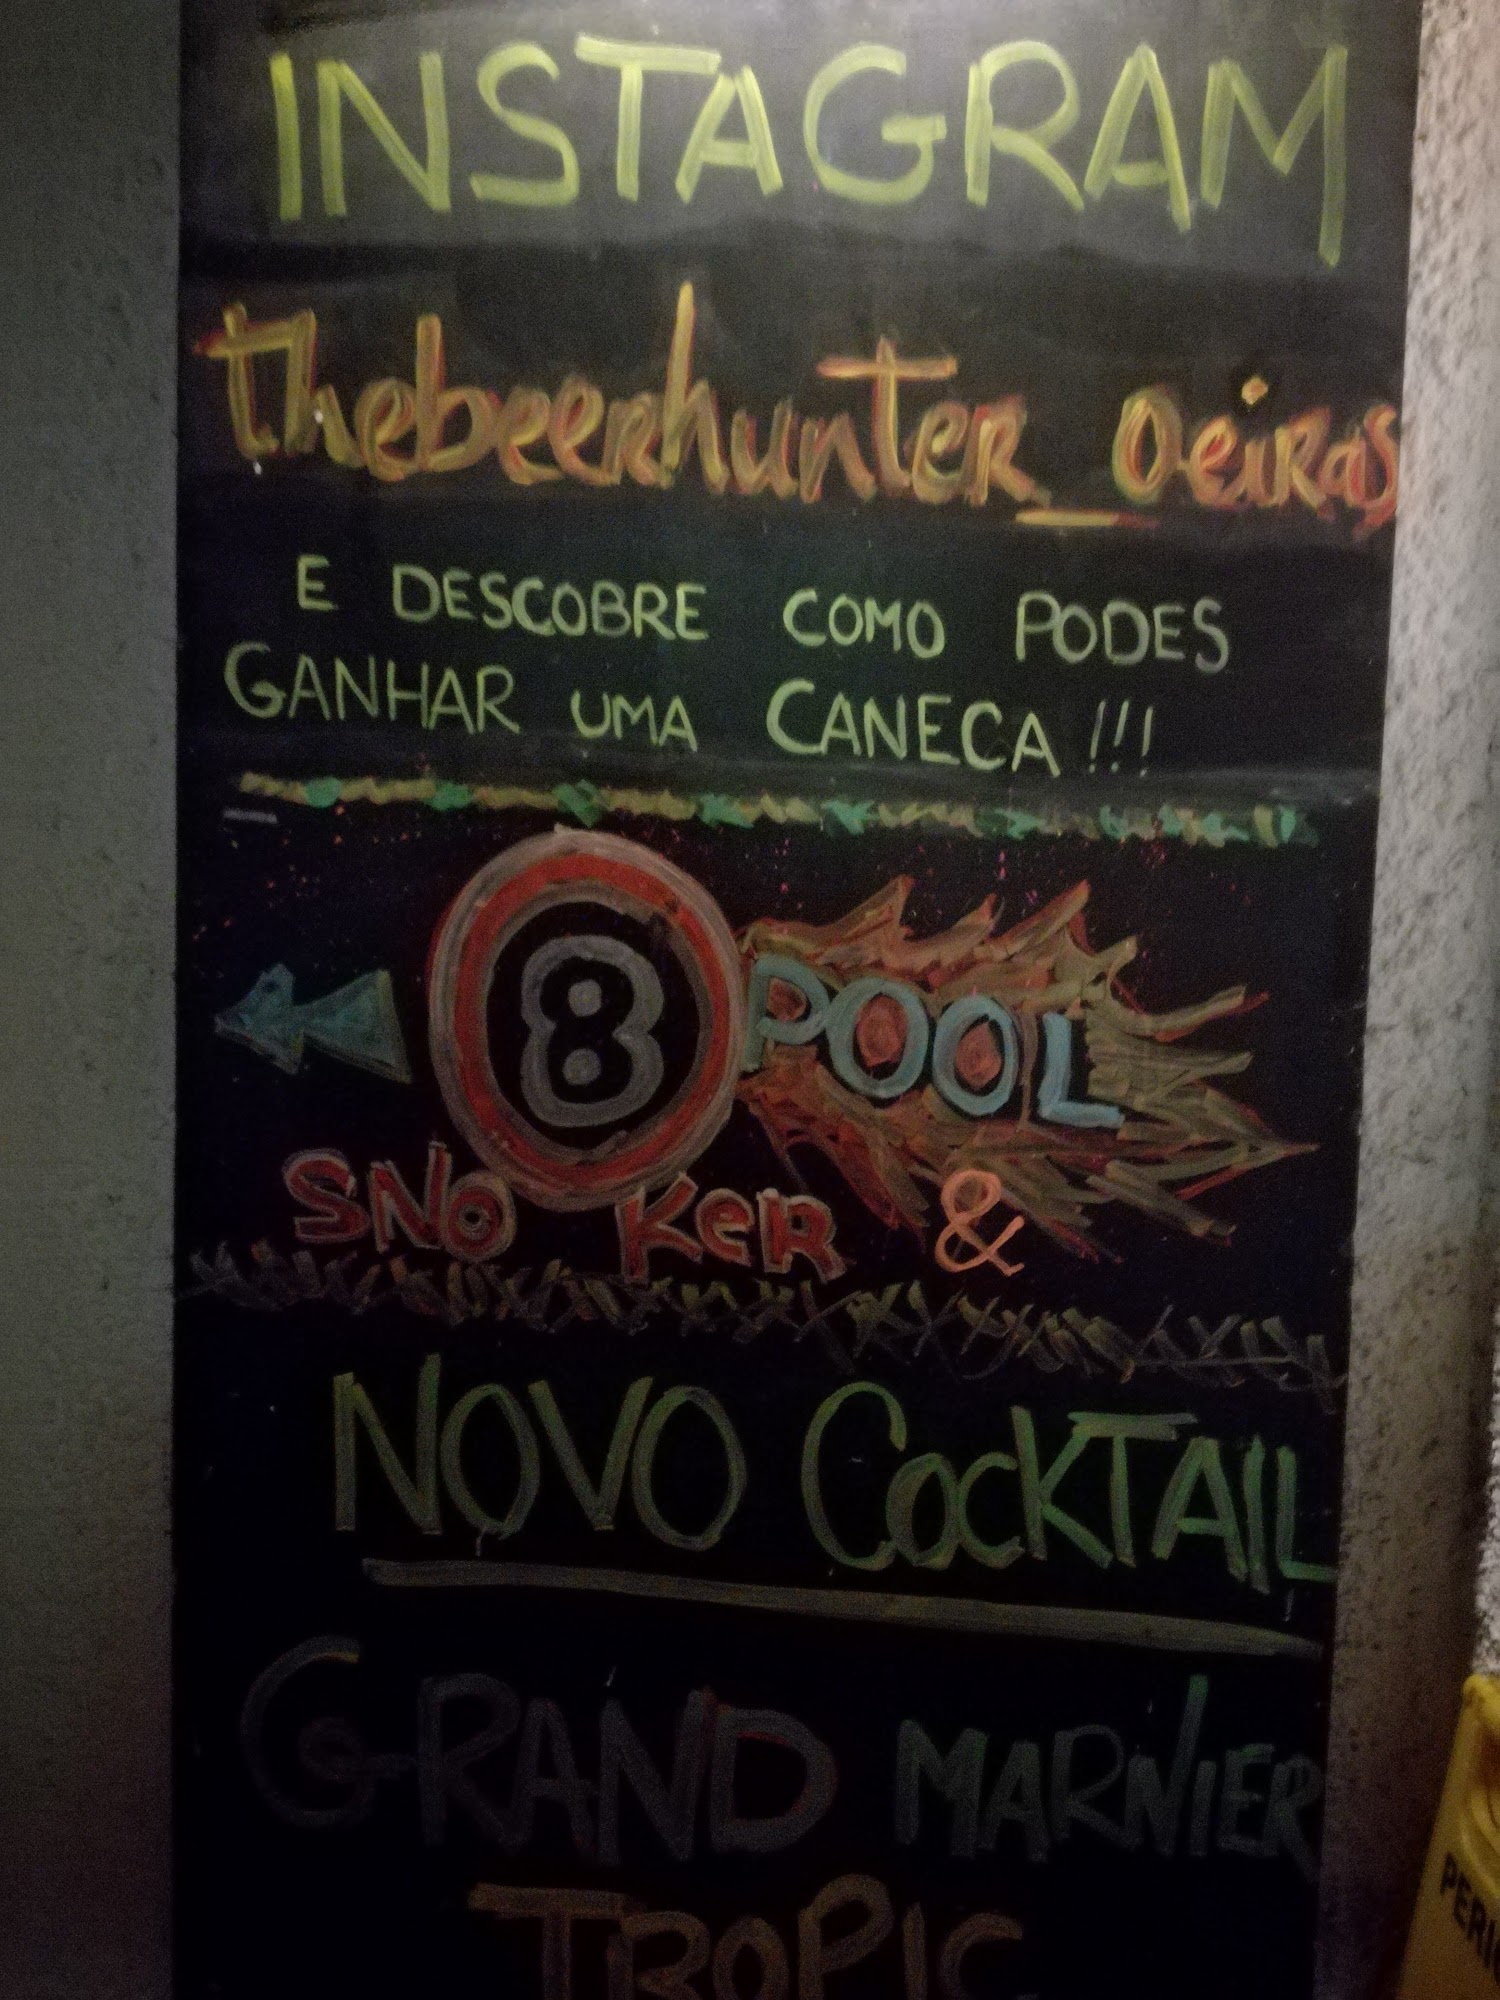 INSTAGRAM
thebeerhunter_oeiras
E DESCOBRE COMO PODES
GANHAR UMA CANECA!!!
8 POOL
SNOOKER &
NOVO COCKTAIL
GRAND MARNIER
TROPIC